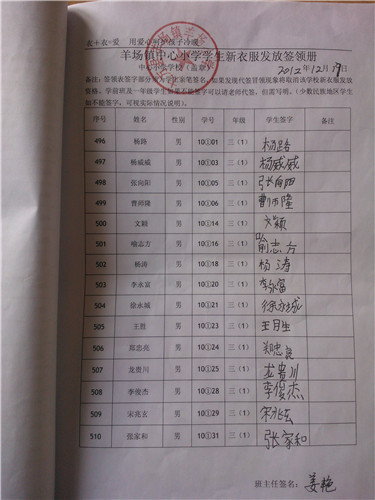 衣+衣>爱 用爱心呵护孩子冷暖
羊场镇中心小学学生新衣服发放签领册
中心小学校(盖章) 2012年12月19日
备注:签领表签字部分 学生亲笔签名,如果发现代签冒领现象将取消该学校新衣服发放
资格。学前班及一年级学生如果不能签字可以请老师代签,但需写明。(少数民族地区学生
如不能签字,可视实际情况说明)。
序号 姓名 性别 学号 年级 学生签字 备注
496 杨路 男 10①01 三(1) 杨路
497 杨威威 男 10①03 三(1) 杨威威
498 张向阳 男 10①05 三(1) 张向阳
499 曹师隆 男 10①06 三(1) 曹师隆
500 文颖 男 10①14 三(1) 文颖
501 喻志方 男 10①16 三(1) 喻志方
502 杨涛 男 10①18 三(1) 杨涛
503 李永富 男 10①20 三(1) 李永富
504 徐永城 男 10①21 三(1) 徐永城
505 王胜 男 10①23 三(1) 王月生
506 郑忠亮 男 10①24 三(1) 郑忠亮
507 龙贵川 男 10①25 三(1) 龙贵川
508 李俊杰 男 10①28 三(1) 李俊杰
509 宋兆玄 男 10①29 三(1) 宋兆玄
510 张家和 男 10①31 三(1) 张家和
班主任签名: 姜艳